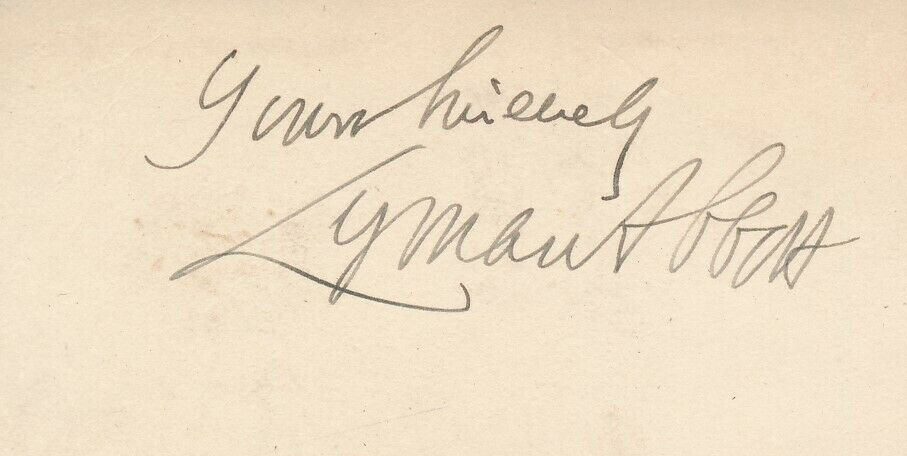 Yours sincerely
Lyman Abbott